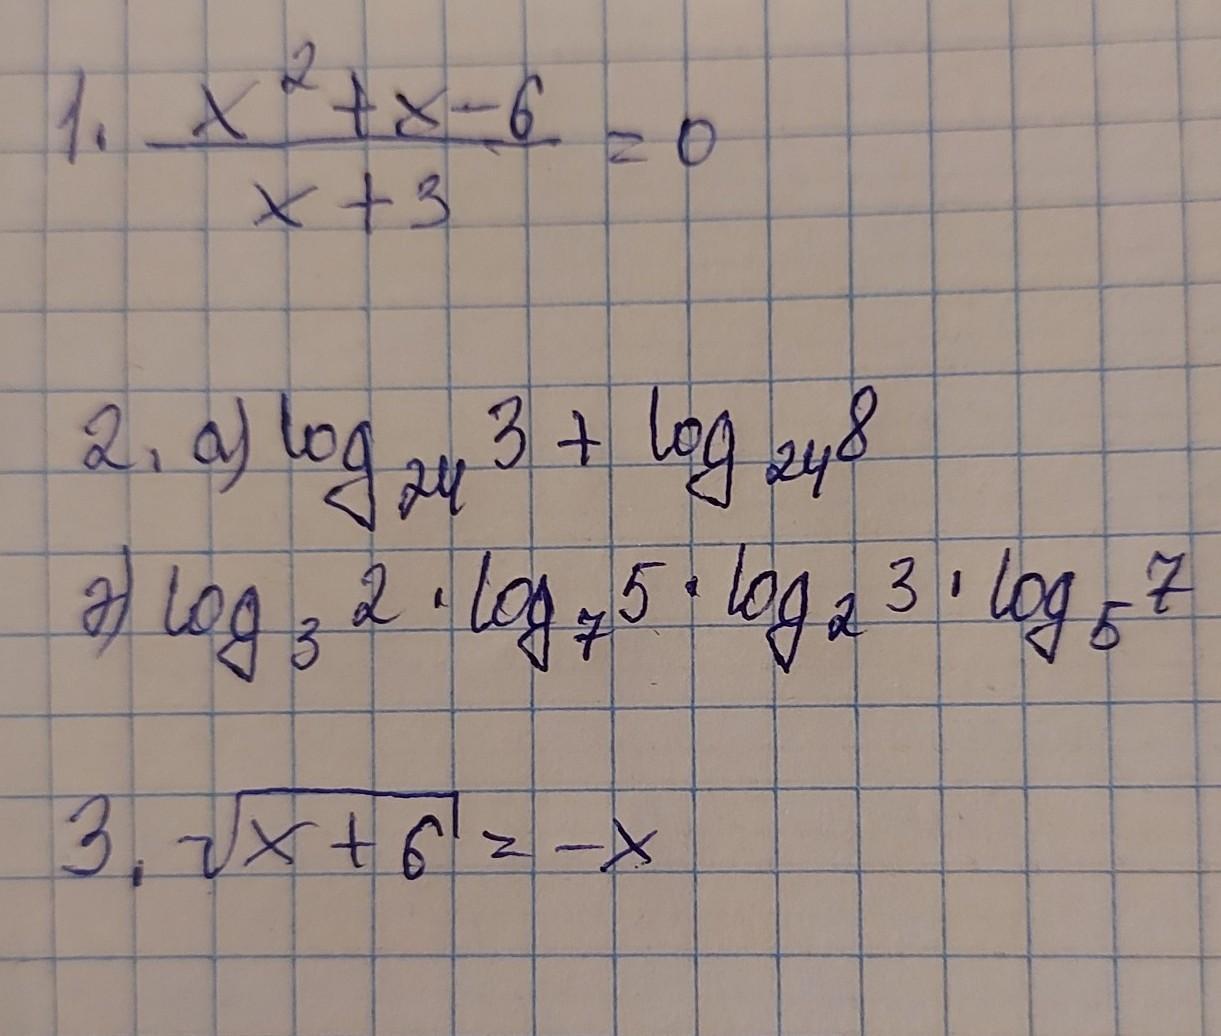 1. \frac{x^2+x-6}{x+3} = 0
2. а) log_{24} 3 + log_{24} 8
г) log_3 2 · log_7 5 · log_2 3 · log_5 7
3. \sqrt{x+6} = -x